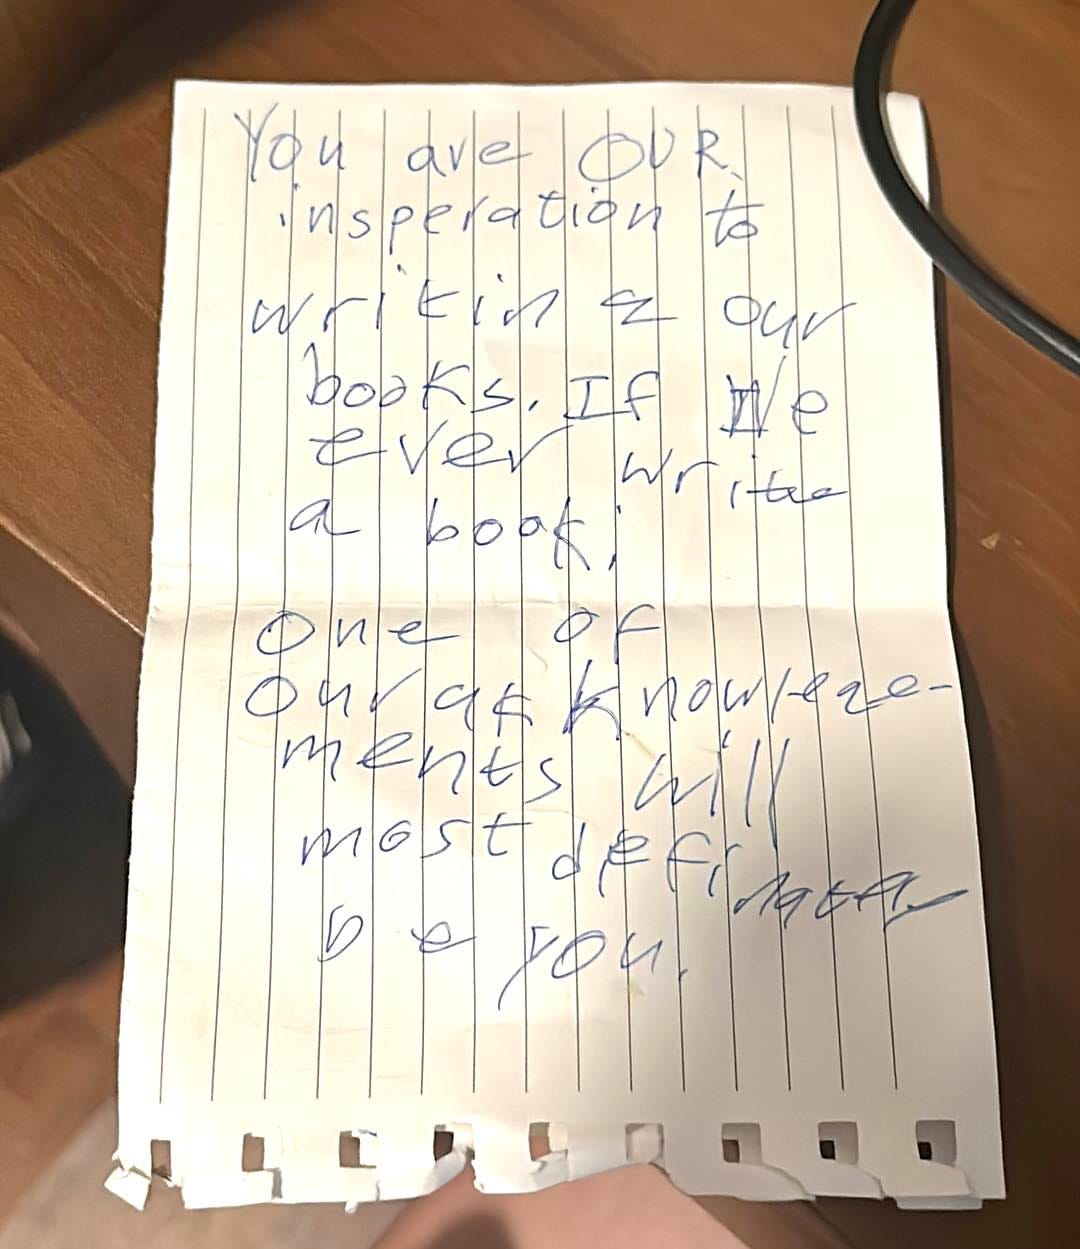 You are OUR
insperation to
writing our
books. If We
ever write
a book,
One of
Our akknowlege-
ments will
most definataly
be you.